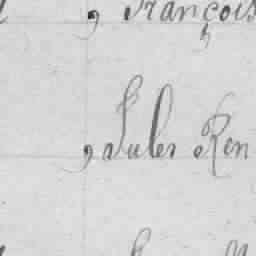 , François
, Jules Ren